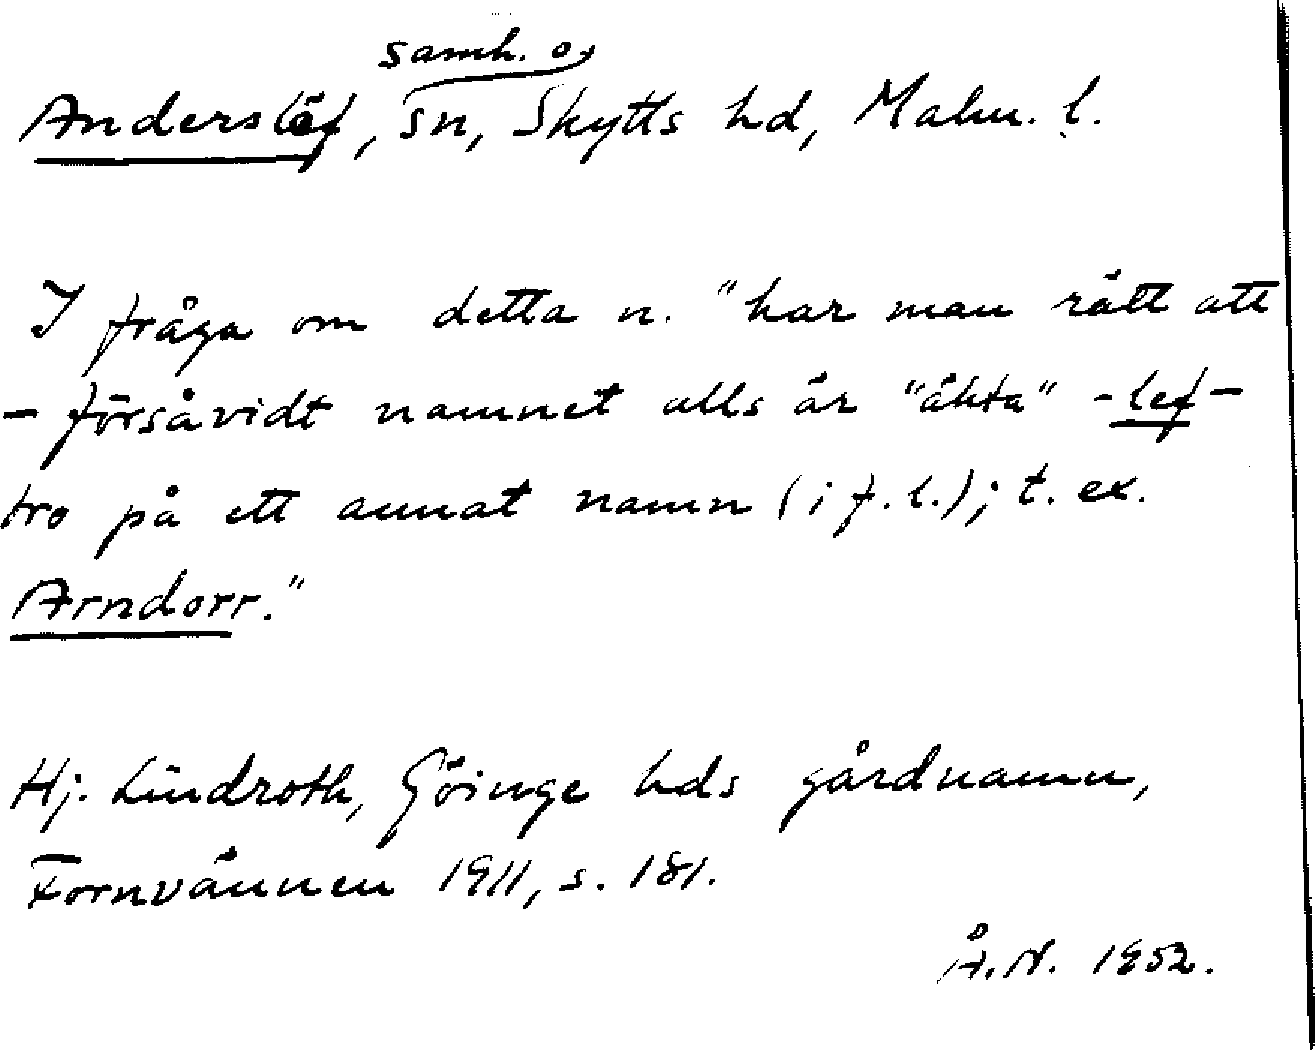 samh. o.
Anderslöf, sn, Skytts hd, Malm. l.
I fråga om detta n. "har man rätt att
- försåvidt namnet alls är "äkta" -lef-
tro på ett annat namn (i f. l.); t. ex.
Arndorr."
Hj. Lindroth, Göinge hds gårdnamn,
Fornvännen 1911, s. 181.
Å. N. 1952.